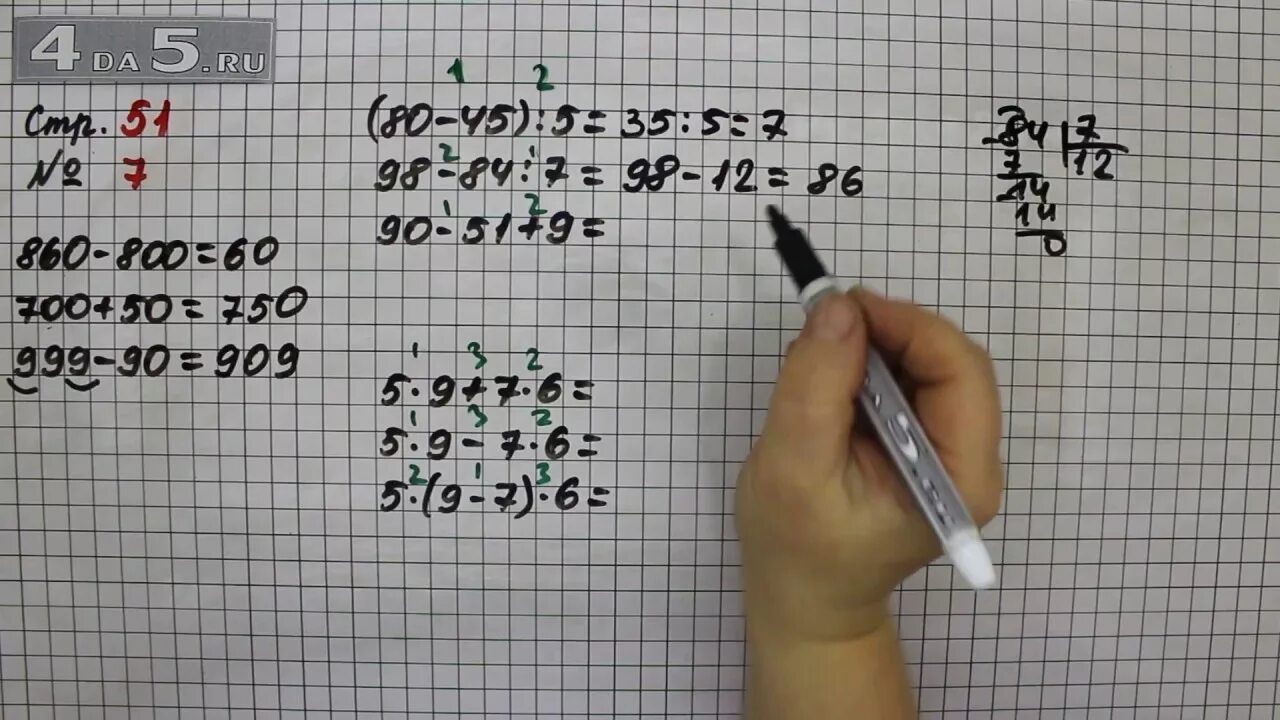 4DA5.RU
Стр. 51
№ 7
860-800=60
700+50=750
999-90=909
1 2
(80-45):5=35:5=7
2 1
98-84:7=98-12=86
1 2
90-51+9=
1 3 2
5·9+7·6=
1 3 2
5·9-7·6=
2 1 3
5·(9-7)·6=
-84 7
7 12
-14
14
0